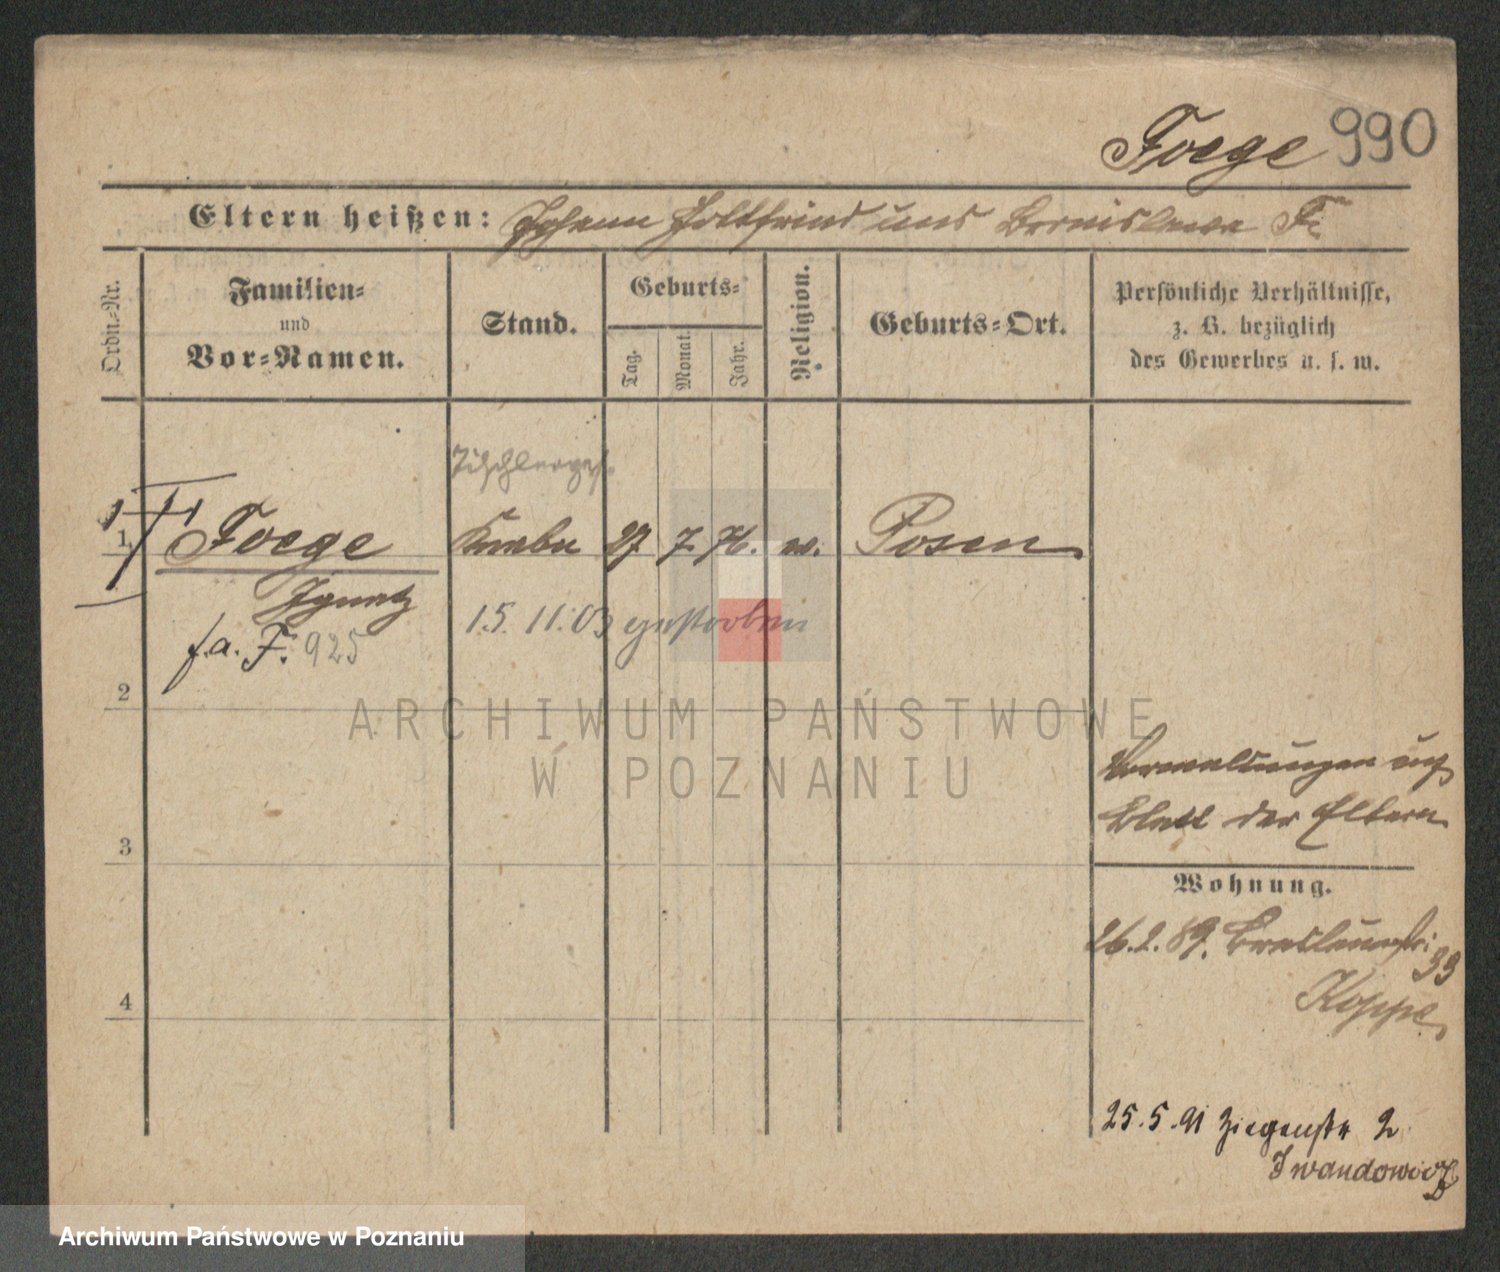 Foege 990
Eltern heißen: Johann Gottfried und Bronislawa F.
Ordn.-Nr.
Familien-
und
Vor-Namen.
Stand.
Geburts-
Tag.
Monat.
Jahr.
Religion.
Geburts-Ort.
Persönliche Verhältnisse,
z. B. bezüglich
des Gewerbes u. s. w.
Tischlerges.
1 Foege Knabe 27 7. 76. Posen
Ignatz
15. 11. 03 gestorben
f. a. F. 925
2
ARCHIWUM PAŃSTWOWE
W POZNANIU
Bermeldungen auf
Blatt der Eltern
3
Wohnung.
26. 2. 89. Breslauerstr. 33
Koppe
4
25. 5. 91 Ziegenstr 2
Archiwum Państwowe w Poznaniu